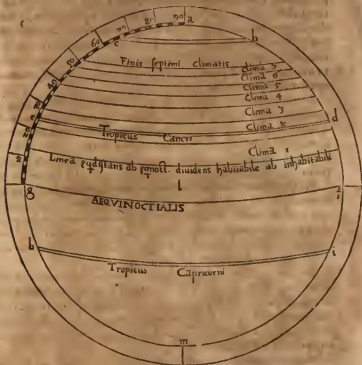 90
80
70
60
50
a
b
c
Finis septimi climatis
Clima 7
Clima 6
Clima 5
Clima 4
Clima 3
Clima 2
Tropicus Cancri
d
Clima 1
Linea eqdistans ab diuidens habitabile ab inhabitabile
l
g
AEQVINOCTIALIS
h
i
Tropicus Capricorni
m